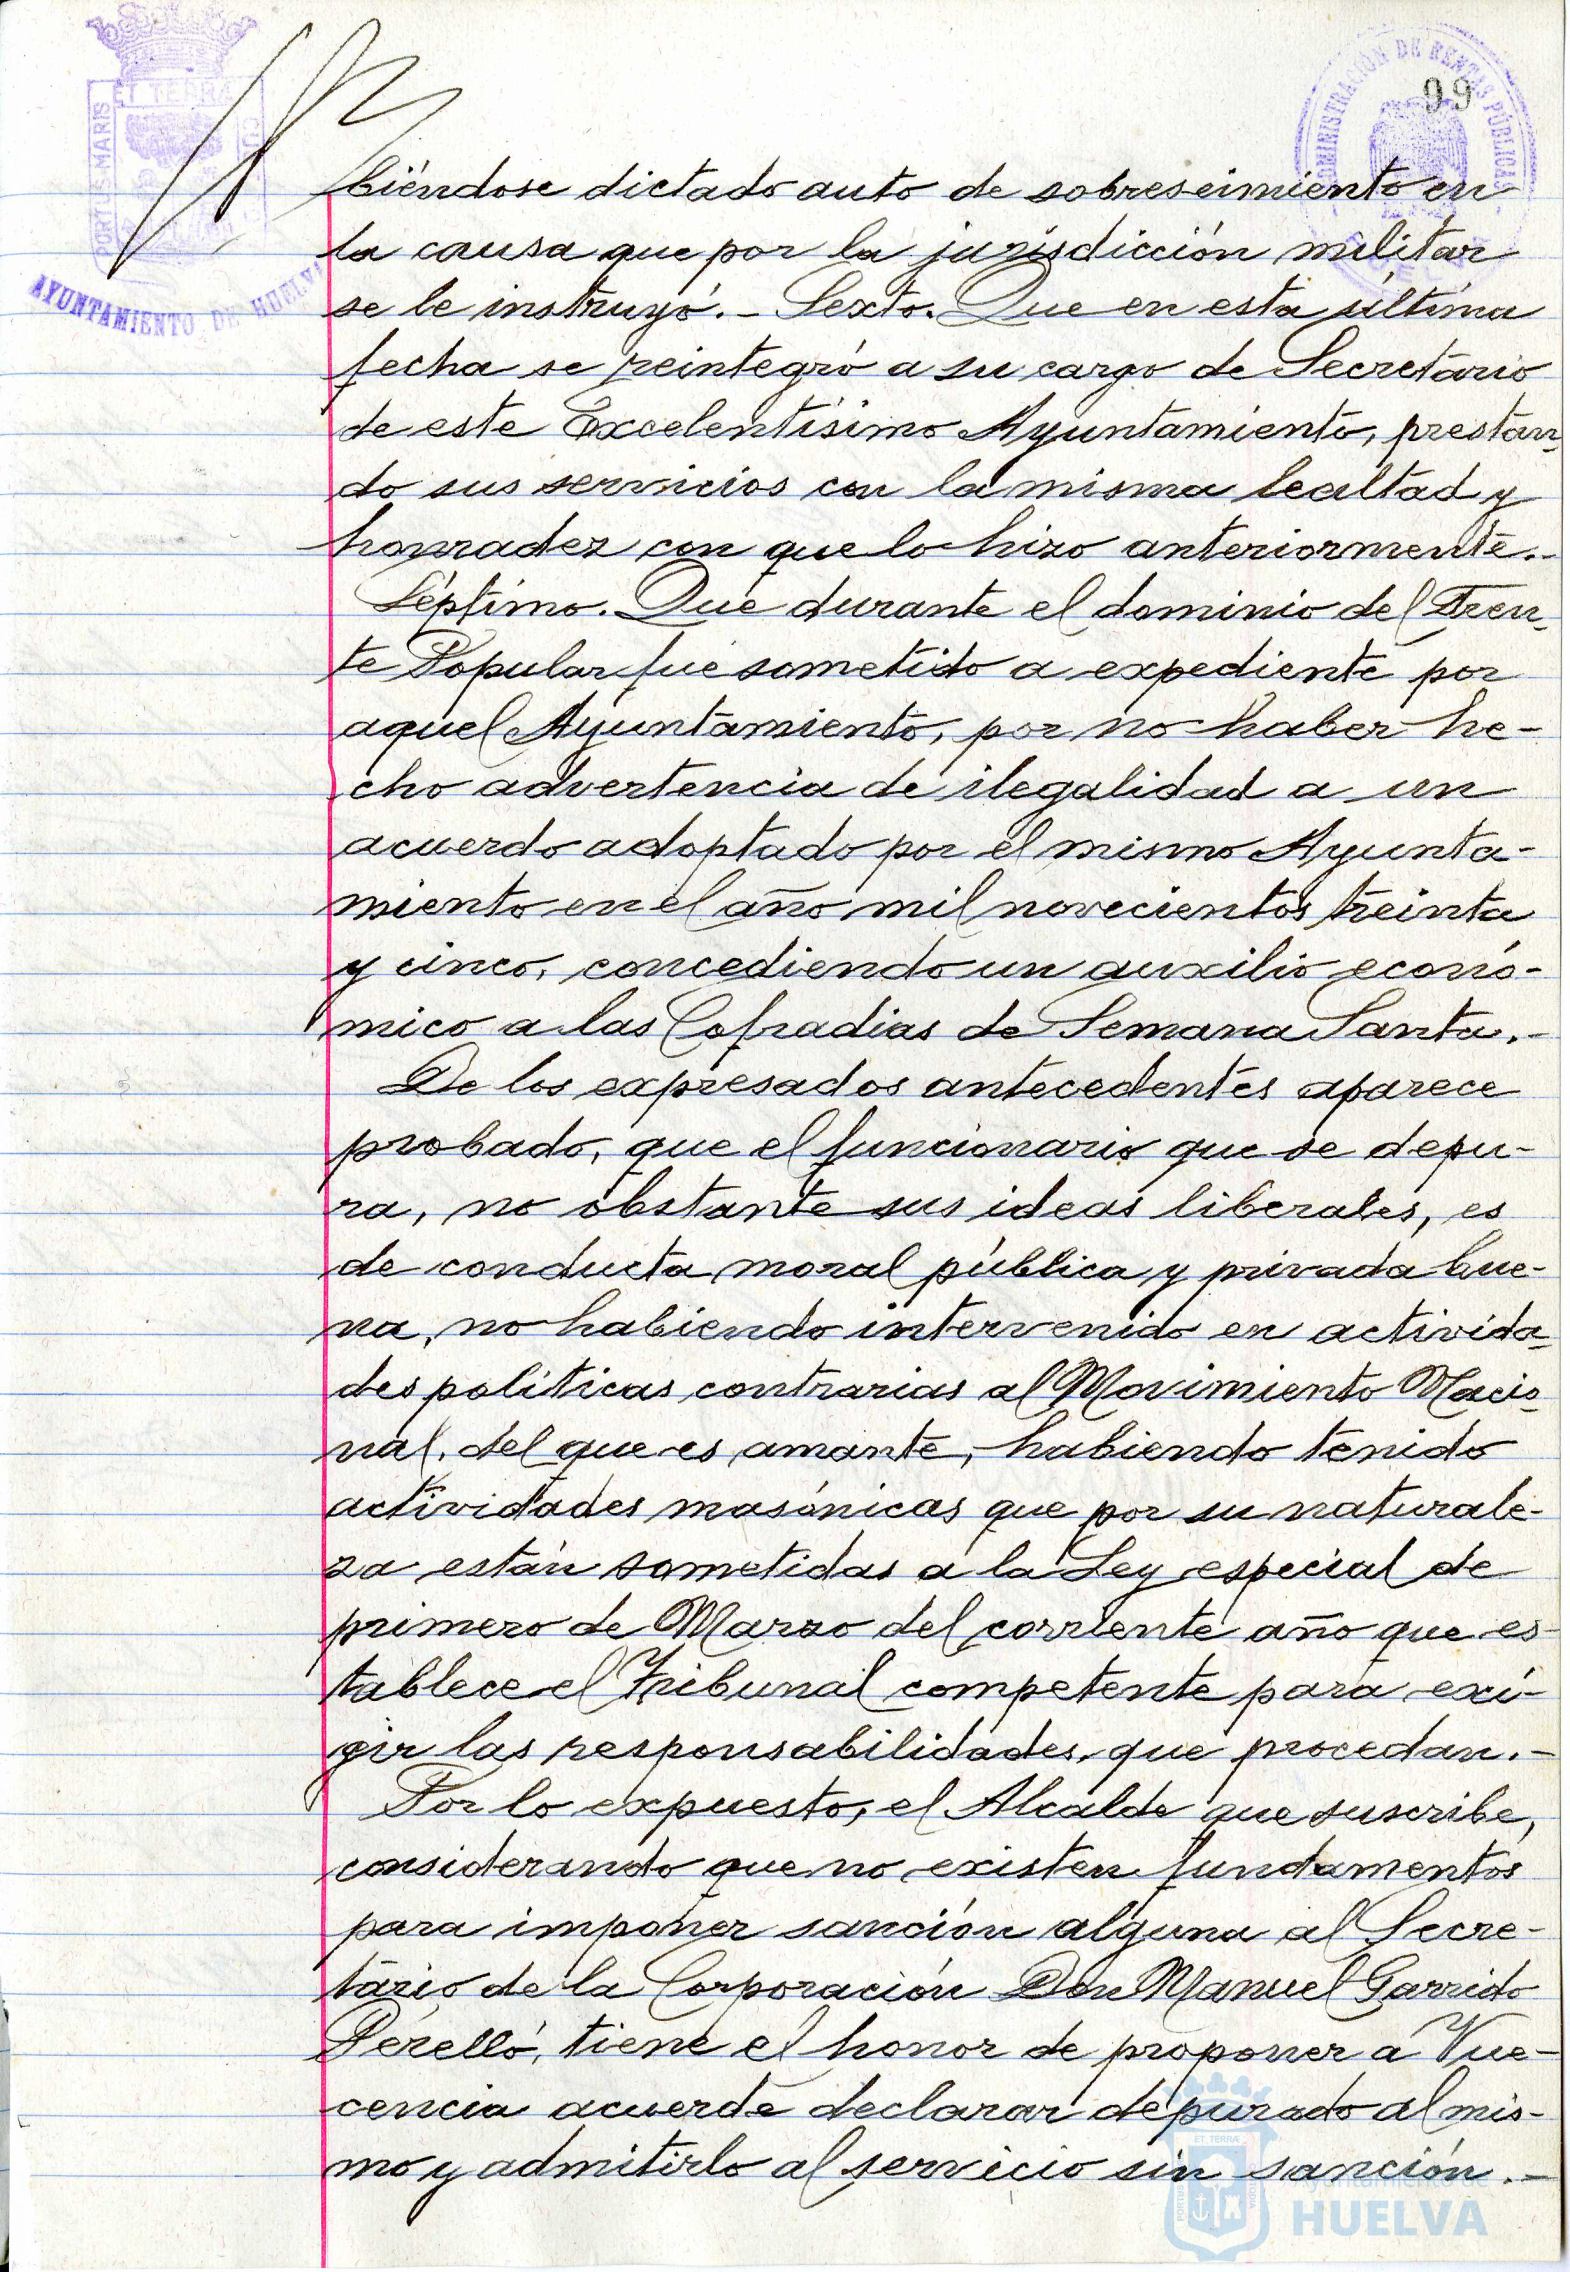 99
ADMINISTRACIÓN DE RENTAS PÚBLICAS
PORTUS MARIS
ET TERRÆ
AYUNTAMIENTO DE HUELVA
biéndose dictado auto de sobreseimiento en
la causa que por la jurisdicción militar
se le instruyó.- Sexto. Que en esta última
fecha se reintegró a su cargo de Secretario
de este Excelentísimo Ayuntamiento, prestan-
do sus servicios con la misma lealtad y
honradez con que lo hizo anteriormente.-
Séptimo. Que durante el dominio del Fren-
te Popular fue sometido a expediente por
aquel Ayuntamiento, por no haber he-
cho advertencia de ilegalidad a un
acuerdo adoptado por el mismo Ayunta-
miento en el año mil novecientos treinta
y cinco, concediendo un auxilio econó-
mico a las Cofradias de Semana Santa.-
De los expresados antecedentes aparece
probado, que el funcionario que se depu-
ra, no obstante sus ideas liberales, es
de conducta moral pública y privada bue-
na, no habiendo intervenido en activida-
des políticas contrarias al Movimiento Nacio-
nal, del que es amante, habiendo tenido
actividades masónicas que por su naturale-
za están sometidas a la Ley especial de
primero de Marzo del corriente año que es-
tablece el Tribunal competente para exi-
gir las responsabilidades, que procedan.-
Por lo expuesto, el Alcalde que suscribe,
considerando que no existen fundamentos
para imponer sanción alguna al Secre-
tario de la Corporación Don Manuel Garrido
Perelló, tiene el honor de proponer a Vue-
cencia acuerde declarar depurado al mis-
mo y admitirlo al servicio sin sanción.-
Ayuntamiento de
HUELVA